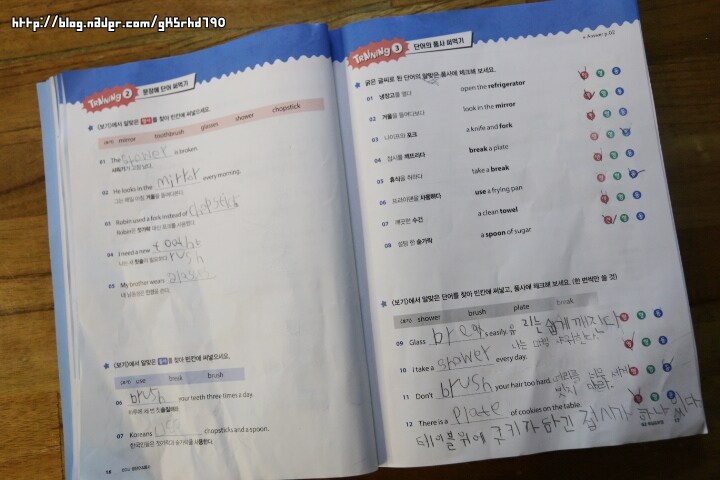 http://blog.naver.com/gk5rhd790
TRAINING 2 문장에 단어 써먹기
<보기>에서 알맞은 명사를 찾아 빈칸에 써넣으세요.
<보기> mirror toothbrush glasses shower chopstick
01 The shower is broken.
샤워기가 고장 났다.
02 He looks in the mirror every morning.
그는 매일 아침 거울을 들여다본다.
03 Robin used a fork instead of
Robin은 젓가락 대신 포크를 사용했다.
04 I need a new toothbrush
나는 새 칫솔이 필요하다.
05 My brother wears glasses
내 남동생은 안경을 쓴다.
<보기>에서 알맞은 동사를 찾아 빈칸에 써넣으세요.
<보기> use break brush
06 brush your teeth three times a day.
하루에 세 번 칫솔질해라.
07 Koreans use chopsticks and a spoon.
한국인들은 젓가락과 숟가락을 사용한다.
TRAINING 3 단어의 품사 써먹기
Answer p.02
굵은 글씨로 된 단어의 알맞은 품사에 체크해 보세요.
01 냉장고를 열다 open the refrigerator
02 거울을 들여다보다 look in the mirror
03 나이프와 포크 a knife and fork
04 접시를 깨뜨리다 break a plate
05 휴식을 취하다 take a break
06 프라이팬을 사용하다 use a frying pan
07 깨끗한 수건 a clean towel
08 설탕 한 숟가락 a spoon of sugar
<보기>에서 알맞은 단어를 찾아 빈칸에 써넣고, 품사에 체크해 보세요. (한 번씩만 쓸 것)
<보기> shower brush plate break
09 Glass easily. 유리는 쉽게 깨진다
10 I take a shower every day. 나는 매일
11 Don't brush your hair too hard. 머리를 너무 세게
빗지 마라.
12 There is a plate of cookies on the table.
테이블 위에 쿠키가 담긴 접시가 하나 있다.